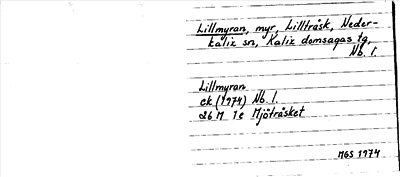 Lillmyran, myr, Lillträsk, Neder-
kalix sn, Kalix domsagas tg,
Nb. l.
Lillmyran
ek (1974) Nb. l.
26 M 1e Mjöträsket
MGS 1974